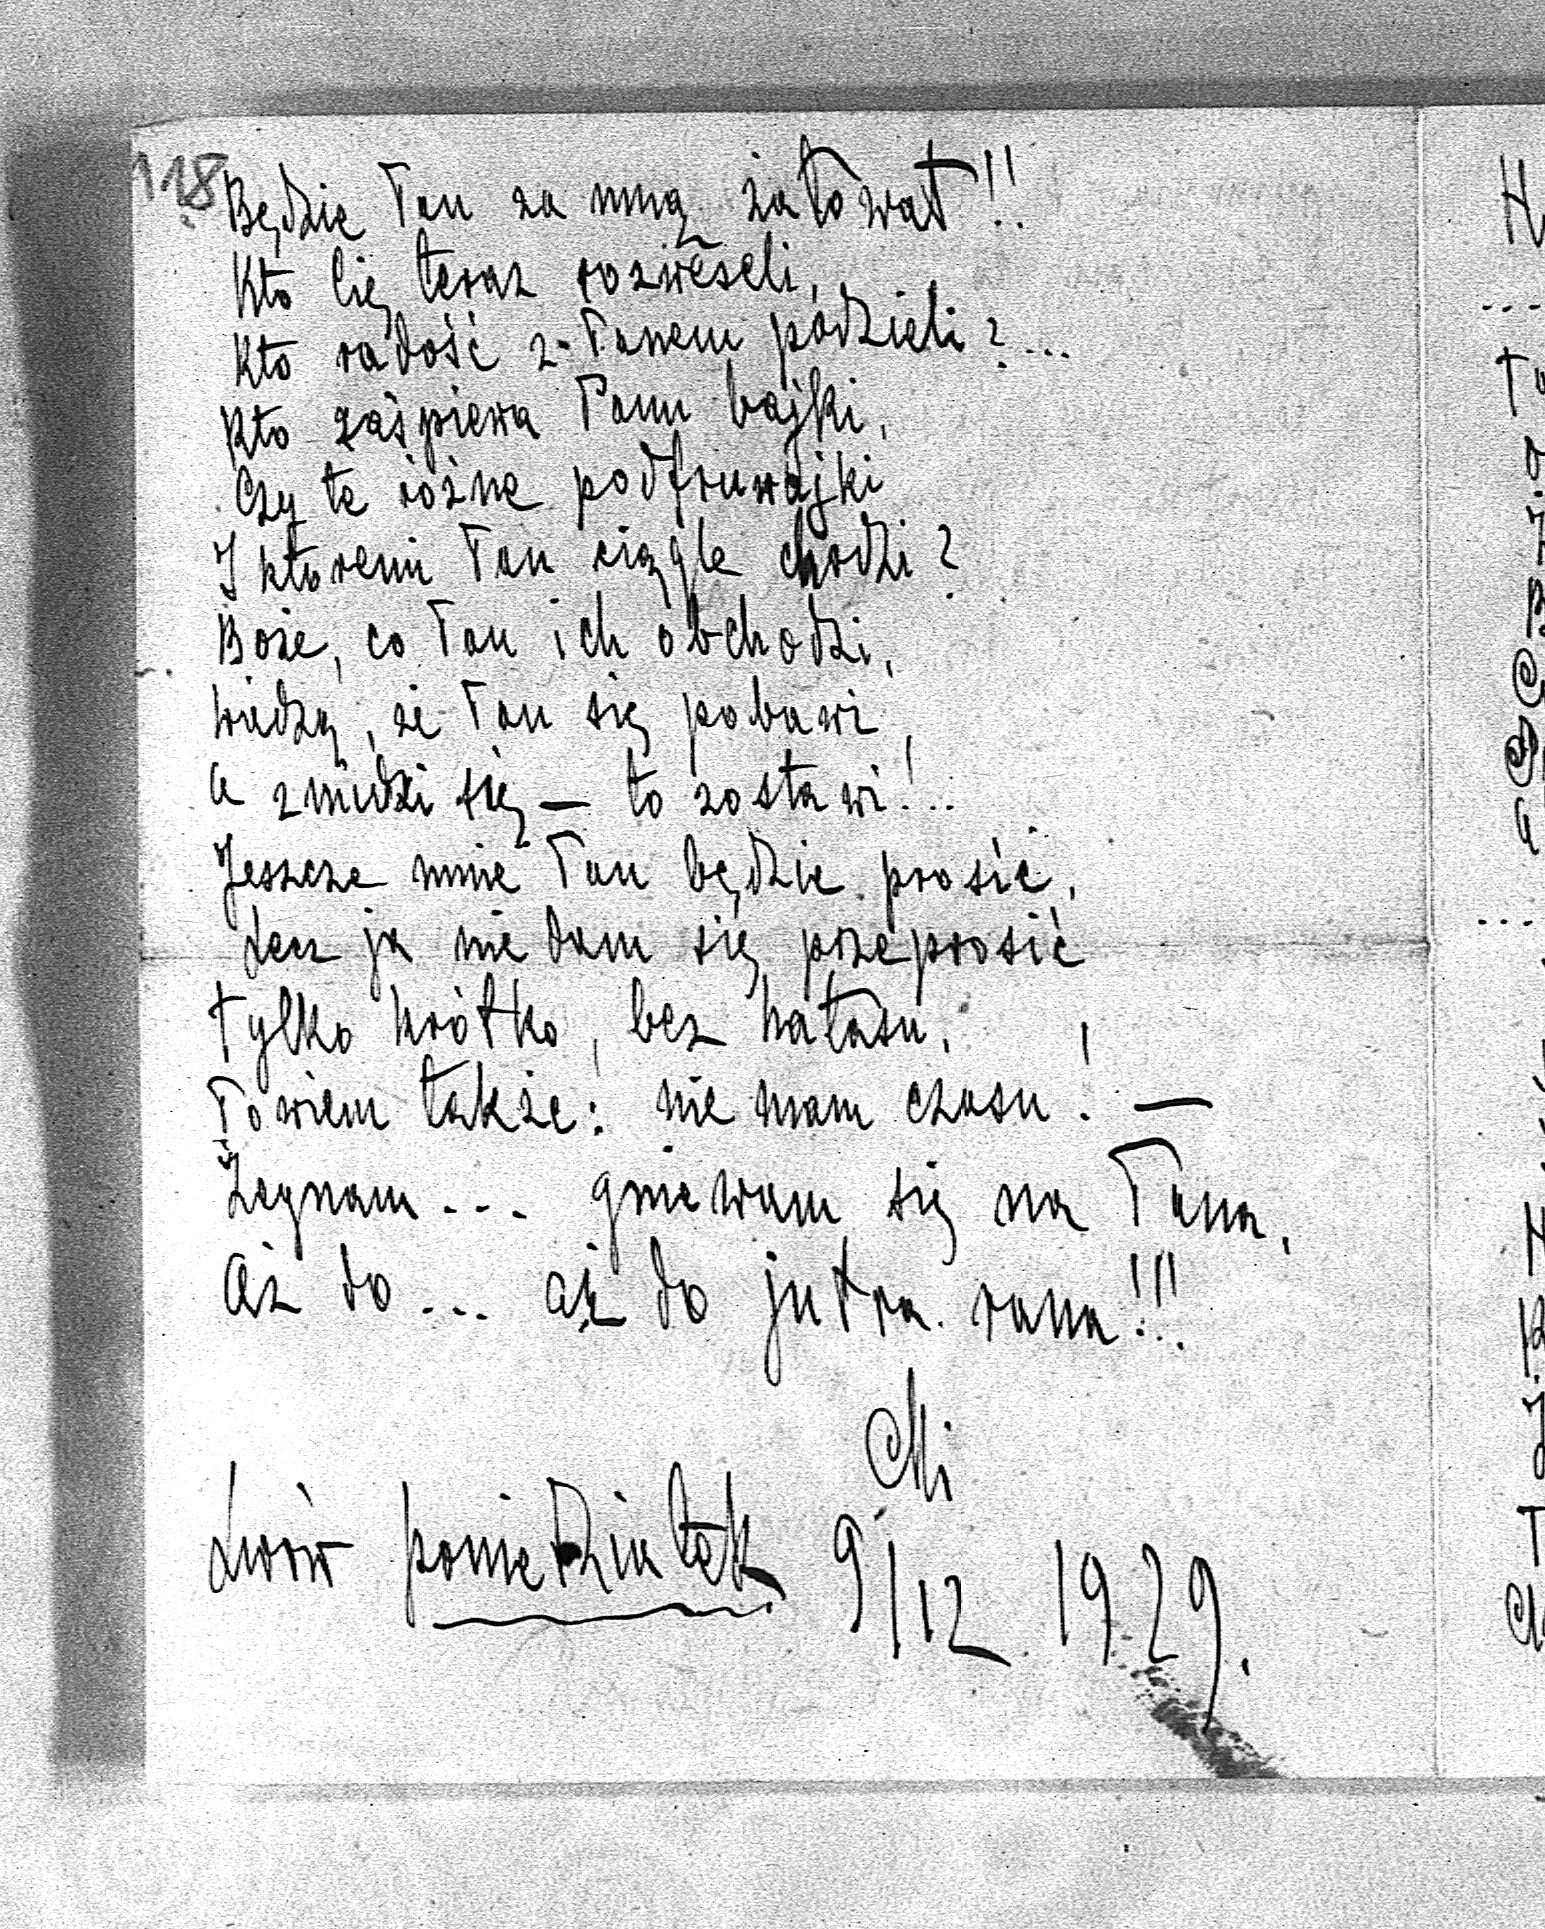 118
Będzie Pan za mną żałował!!
Kto Cię teraz rozweseli,
Kto radość z Panem podzieli?...
Kto zaśpiewa Panu bajki,
Czy te różne podfruwajki
Z któremi Pan ciągle chodzi?
Boże, co Pan ich obchodzi,
Wiedzą, że Pan się pobawi,
a znudzi się — to zostawi!..
Jeszcze mnie Pan będzie prosić,
Lecz ja nie dam się przeprosić
Tylko krótko, bez hałasu,
Powiem także: nie mam czasu! —
Żegnam... gniewam się na Pana,
Aż do... aż do jutra rana!!!
Mi
Lwów poniedziałek 9/12 1929.